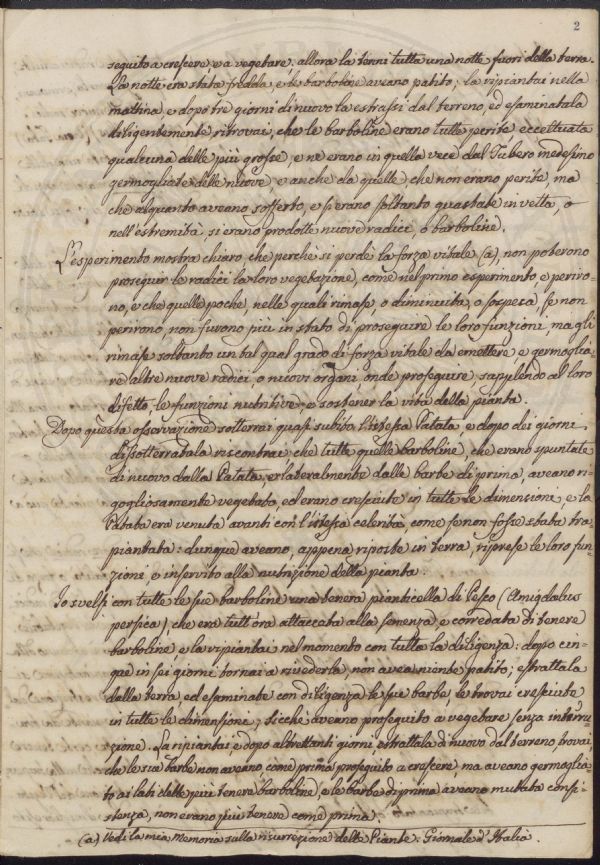 2
seguito a crescere e a vegetare, allora la tenni tutta una notte fuori della terra.
La notte era stata fredda, e le barboline aveano patito; la ripiantai nella
mattina, e dopo tre giorni di nuovo la estrassi dal terreno, ed esaminatala
diligentemente ritrovai, che le barboline erano tutte perite eccettuata
qualcuna delle più grosse, e ne erano in quella vece dal Tubero medesimo
germogliate delle nuove, e anche da quelle, che non erano perite, ma
che alquanto aveano sofferto, e s'erano soltanto guastate in vetta, o
nell'estremità, si erano prodotte nuove radici, o barboline.
L'esperimento mostra chiaro, che perchè si perdè la forza vitale (a), non poterono
proseguir le radici la loro vegetazione, come nel primo esperimento, e periro-
no, e che quelle poche, nelle quali rimase, o diminuita, o sospesa, se non
perirono, non furono più in stato di proseguire le loro funzioni, ma gli
rimase soltanto un tal qual grado di forza vitale da emettere, e germoglia-
re altre nuove radici, o nuovi organi, onde proseguire, supplendo al loro
difetto, le funzioni nutritive, e sostener la vita della pianta.
Dopo questa osservazione sotterrai quasi subito l'istessa Patata, e dopo dei giorni
dissotterratala riscontrai che tutte quelle barboline, che erano spuntate
di nuovo dalla Patata, e lateralmente dalle barbe di prima, aveano ri-
gogliosamente vegetato, ed erano cresciute in tutte le dimensioni, e la
Patata era venuta avanti con l'istessa celerità, come se non fosse stata tra
piantata: dunque aveano, appena riposte in terra, riprese le loro fun-
zioni, e inservito alla nutrizione della pianta.
Io svelsi con tutte le sue barboline una tenera pianticella di Pesco (Amigdalus
persica), che era tutt'ora attaccata alla semenza, e corredata di tenere
barboline, e la ripiantai nel momento con tutta la diligenza: dopo cin-
que in sei giorni tornai a rivederla, non avea niente patito; estrattala
dalla terra, ed esaminate con diligenza le sue barbe, le trovai cresciute
in tutte le dimensioni; sicchè aveano proseguito a vegetare senza interru
zione. La ripiantai, e dopo altrettanti giorni, estrattala di nuovo dal terreno, trovai,
che le sue barbe non aveano come prima proseguito a crescere, ma aveano germoglia-
to ai lati delle più tenere barboline, e le barbe di prima aveano mutata consi-
stenza, non erano più tenere come prima.
(a) Vedi la mia Memoria sulla risurrezione delle Piante. Giornale d'Italia.